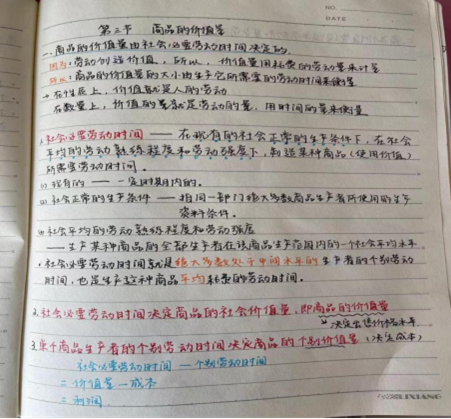 NO.
DATE
第二节 商品的价值量
一.商品的价值量由社会必要劳动时间决定的.
因为:劳动创造价值,所以,价值量用耗费的劳动量来计量
所以:商品的价值量的大小由生产它所需要的劳动时间来衡量
→ 在性质上,价值就是人的劳动
在数量上,价值的量就是劳动的量,用时间的量来衡量
1.社会必要劳动时间 —— 在现有的社会正常的生产条件下,在社会
平均的劳动熟练程度和劳动强度下,制造某种商品(使用价值)
所需要劳动时间.
(1) 现有的 —— 一定时期内的.
(2) 社会正常的生产条件 —— 指同一部门绝大多数商品生产者所使用的生产
资料条件.
(3) 社会平均的劳动熟练程度和劳动强度
—— 生产某种商品的全部生产者在该商品生产范围内的一个社会平均水平
·社会必要劳动时间就是绝大多数处于中间水平的生产者的个别劳动
时间,也是生产这种商品平均耗费的劳动时间.
2.社会必要劳动时间决定商品的社会价值量,即商品的价值量
决定出售价格水平
3.单个商品生产者的个别劳动时间决定商品的个别价值量(决定成本)
社会必要劳动时间 — 个别劳动时间
= 价值量 — 成本
= 利润